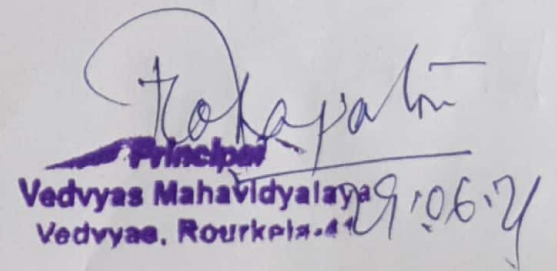 Principal
Vedvyas Mahavidyalaya
Vedvyas, Rourkela-41
29.06.21